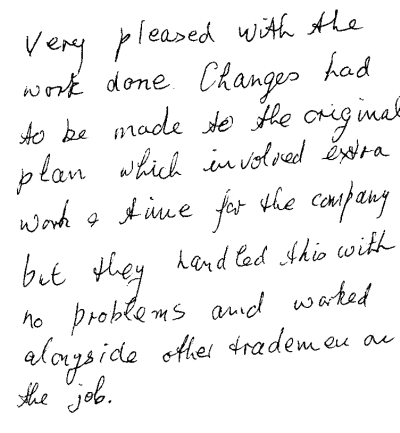 Very pleased with the
work done. Changes had
to be made to the original
plan which involved extra
work & time for the company
but they handled this with
no problems and worked
alongside other trademen on
the job.